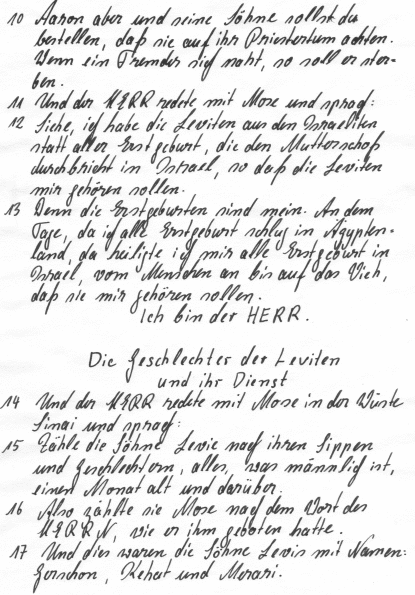 10 Aaron aber und seine Söhne sollst du
bestellen, daß sie auf ihr Priestertum achten.
Wenn ein Fremder sich naht, so soll er ster-
ben.
11 Und der HERR redete mit Mose und sprach:
12 Siehe, ich habe die Leviten aus den Israeliten
statt aller Erstgeburt, die den Mutterschoß
durchbricht in Israel, so daß die Leviten
mir gehören sollen.
13 Denn die Erstgeburten sind mein. An dem
Tage, da ich alle Erstgeburt schlug in Ägypten-
land, da heiligte ich mir alle Erstgeburt in
Israel, vom Menschen an bis auf das Vieh,
daß sie mir gehören sollen.
Ich bin der HERR.
Die Geschlechter der Leviten
und ihr Dienst
14 Und der HERR redete mit Mose in der Wüste
Sinai und sprach:
15 Zähle die Söhne Levis nach ihren Sippen
und Geschlechtern, alles, was männlich ist,
einen Monat alt und darüber.
16 Also zählte sie Mose nach dem Wort des
HERRN, wie er ihm geboten hatte.
17 Und dies waren die Söhne Levis mit Namen:
Gerschon, Kehat und Merari.